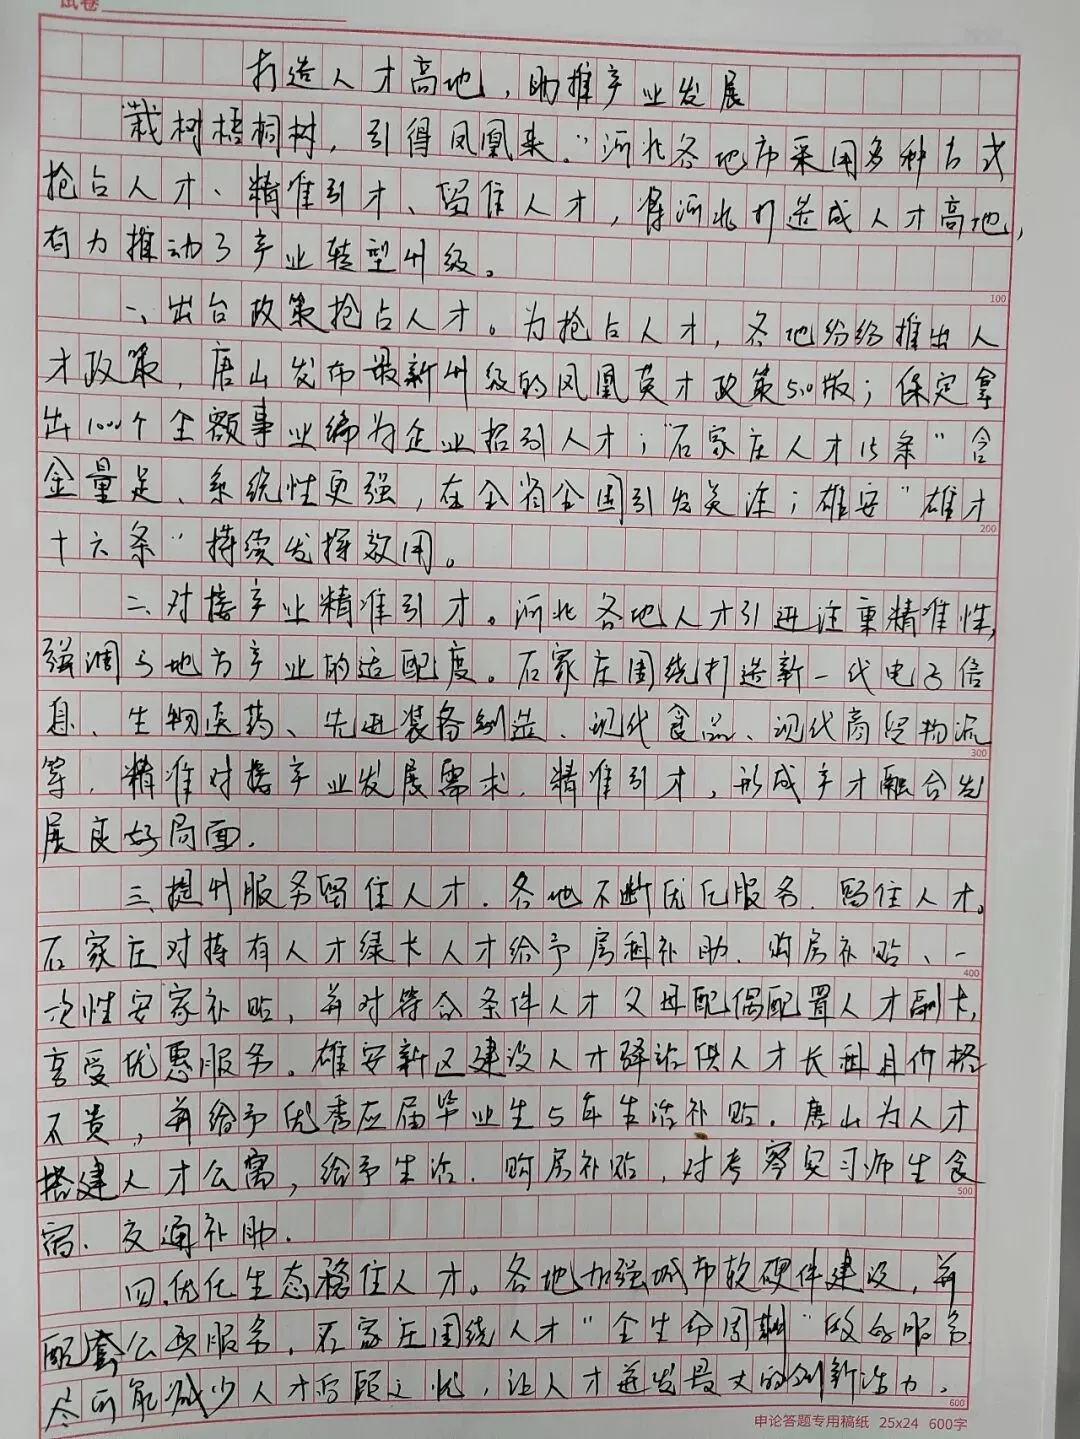 试卷
打造人才高地，助推产业发展
“栽树梧桐树，引得凤凰来。”河北各地市采用多种方式
抢占人才、精准引才、留住人才，将河北打造成人才高地，
有力推动了产业转型升级。
100
一、出台政策抢占人才。为抢占人才，各地纷纷推出人
才政策，唐山发布最新升级的凤凰英才政策5.0版；保定拿
出1000个全额事业编为企业招引人才；“石家庄人才15条”含
金量足、系统性更强，在全省全国引发关注；雄安“雄才
200
十六条”持续发挥效用。
二、对接产业精准引才。河北各地人才引进注重精准性，
强调与地方产业的适配度。石家庄围绕打造新一代电子信
息、生物医药、先进装备制造、现代食品、现代商贸物流
300
等，精准对接产业发展需求，精准引才，形成产才融合发
展良好局面。
三、提升服务留住人才。各地不断优化服务，留住人才。
石家庄对持有人才绿卡人才给予房租补助、购房补贴、一
400
次性安家补贴，并对符合条件人才父母配偶配置人才副卡，
享受优惠服务。雄安新区建设人才驿站供人才长租且价格
不贵，并给予优秀应届毕业生5年生活补贴。唐山为人才
搭建人才公寓，给予生活、购房补贴，对考察实习师生食
500
宿、交通补助。
四、优化生态稳住人才。各地加强城市软硬件建设，并
配套公共服务，石家庄围绕人才“全生命周期”做好服务
尽可能减少人才后顾之忧，让人才迸发最大的创新活力。
600
申论答题专用稿纸 25x24 600字